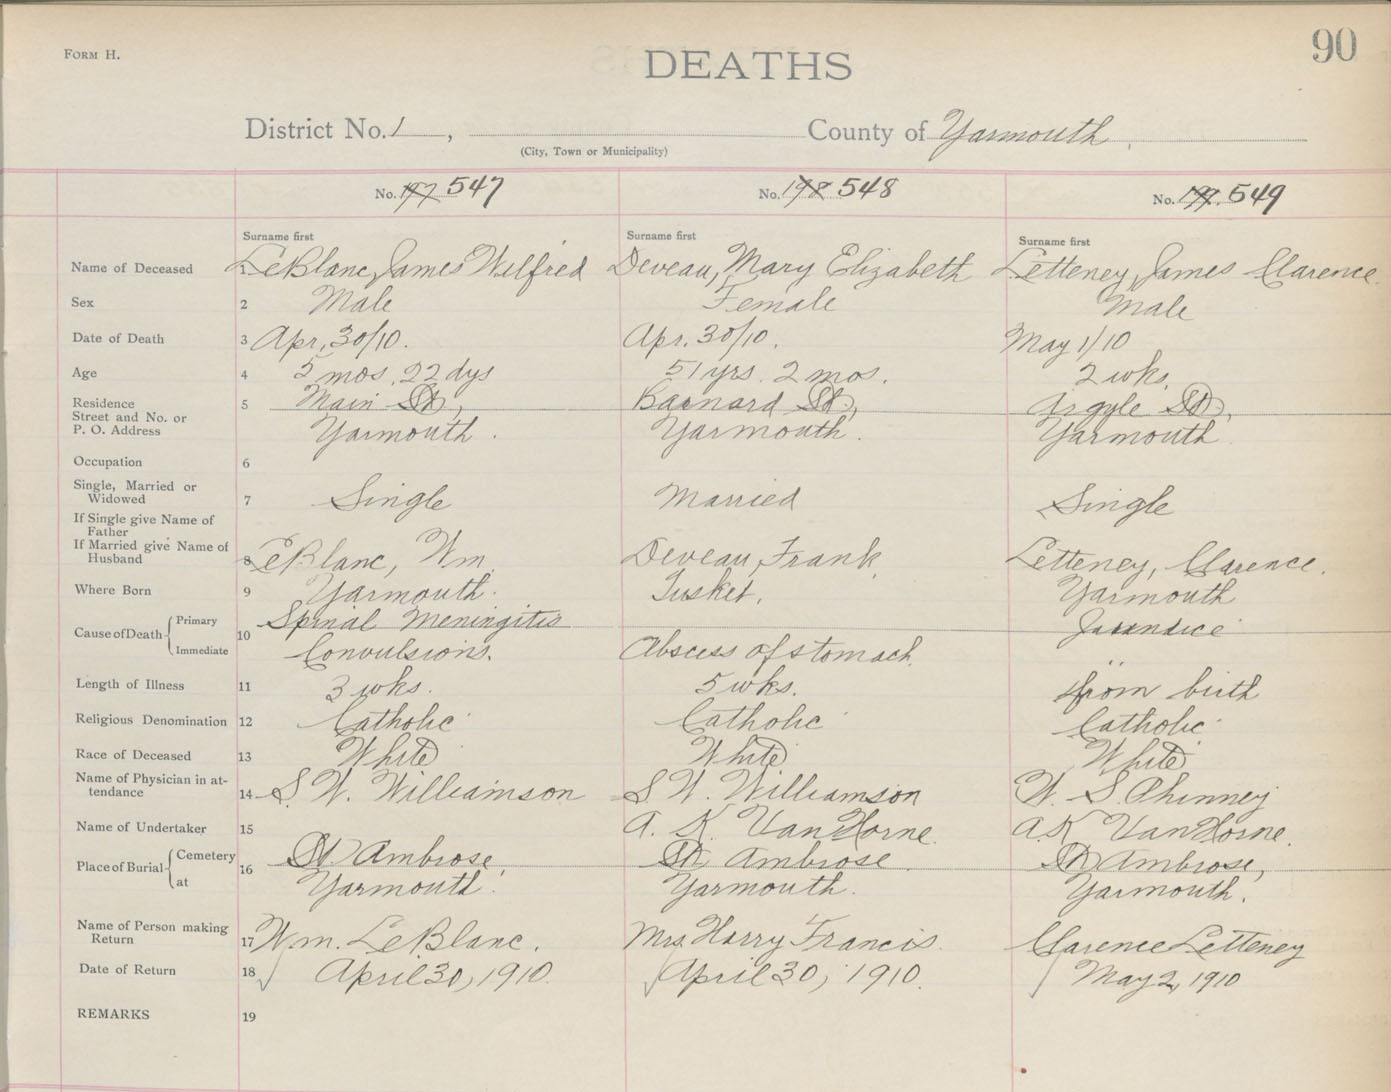 FORM H.
DEATHS
90
District No. 1, County of Yarmouth
(City, Town or Municipality)
No. 197 547 No. 198 548 No. 199. 549
Surname first Surname first Surname first
Name of Deceased 1 LeBlanc, James Wilfred Deveau, Mary Elizabeth Letteney, James Clarence.
Sex 2 Male Female Male
Date of Death 3 Apr, 30/10. Apr. 30/10. May 1/10
Age 4 5 mos. 22 dys 51 yrs. 2 mos. 2 wks.
Residence 5 Main St, Barnard St, Argyle St,
Street and No. or
P. O. Address Yarmouth. Yarmouth. Yarmouth
Occupation 6
Single, Married or
Widowed 7 Single Married Single
If Single give Name of
Father
If Married give Name of
Husband 8 LeBlanc, Wm. Deveau, Frank Letteney, Clarence.
Where Born 9 Yarmouth. Tusket. Yarmouth
Cause of Death Primary 10 Spinal Meningitis Jaundice
Immediate Convulsions. Abscess of stomach. "
Length of Illness 11 3 wks. 5 wks. from birth
Religious Denomination 12 Catholic Catholic Catholic
Race of Deceased 13 White White White
Name of Physician in at-
tendance 14 S. W. Williamson S. W. Williamson W. S. Phinney
Name of Undertaker 15 A. K. Van Horne. A. K. Van Horne.
Place of Burial Cemetery 16 St Ambrose, St Ambrose St Ambrose,
at Yarmouth. Yarmouth. Yarmouth.
Name of Person making
Return 17 Wm. LeBlanc. Mrs. Harry Francis. Clarence Letteney
Date of Return 18 April 30, 1910. April 30, 1910. May 2, 1910
REMARKS 19